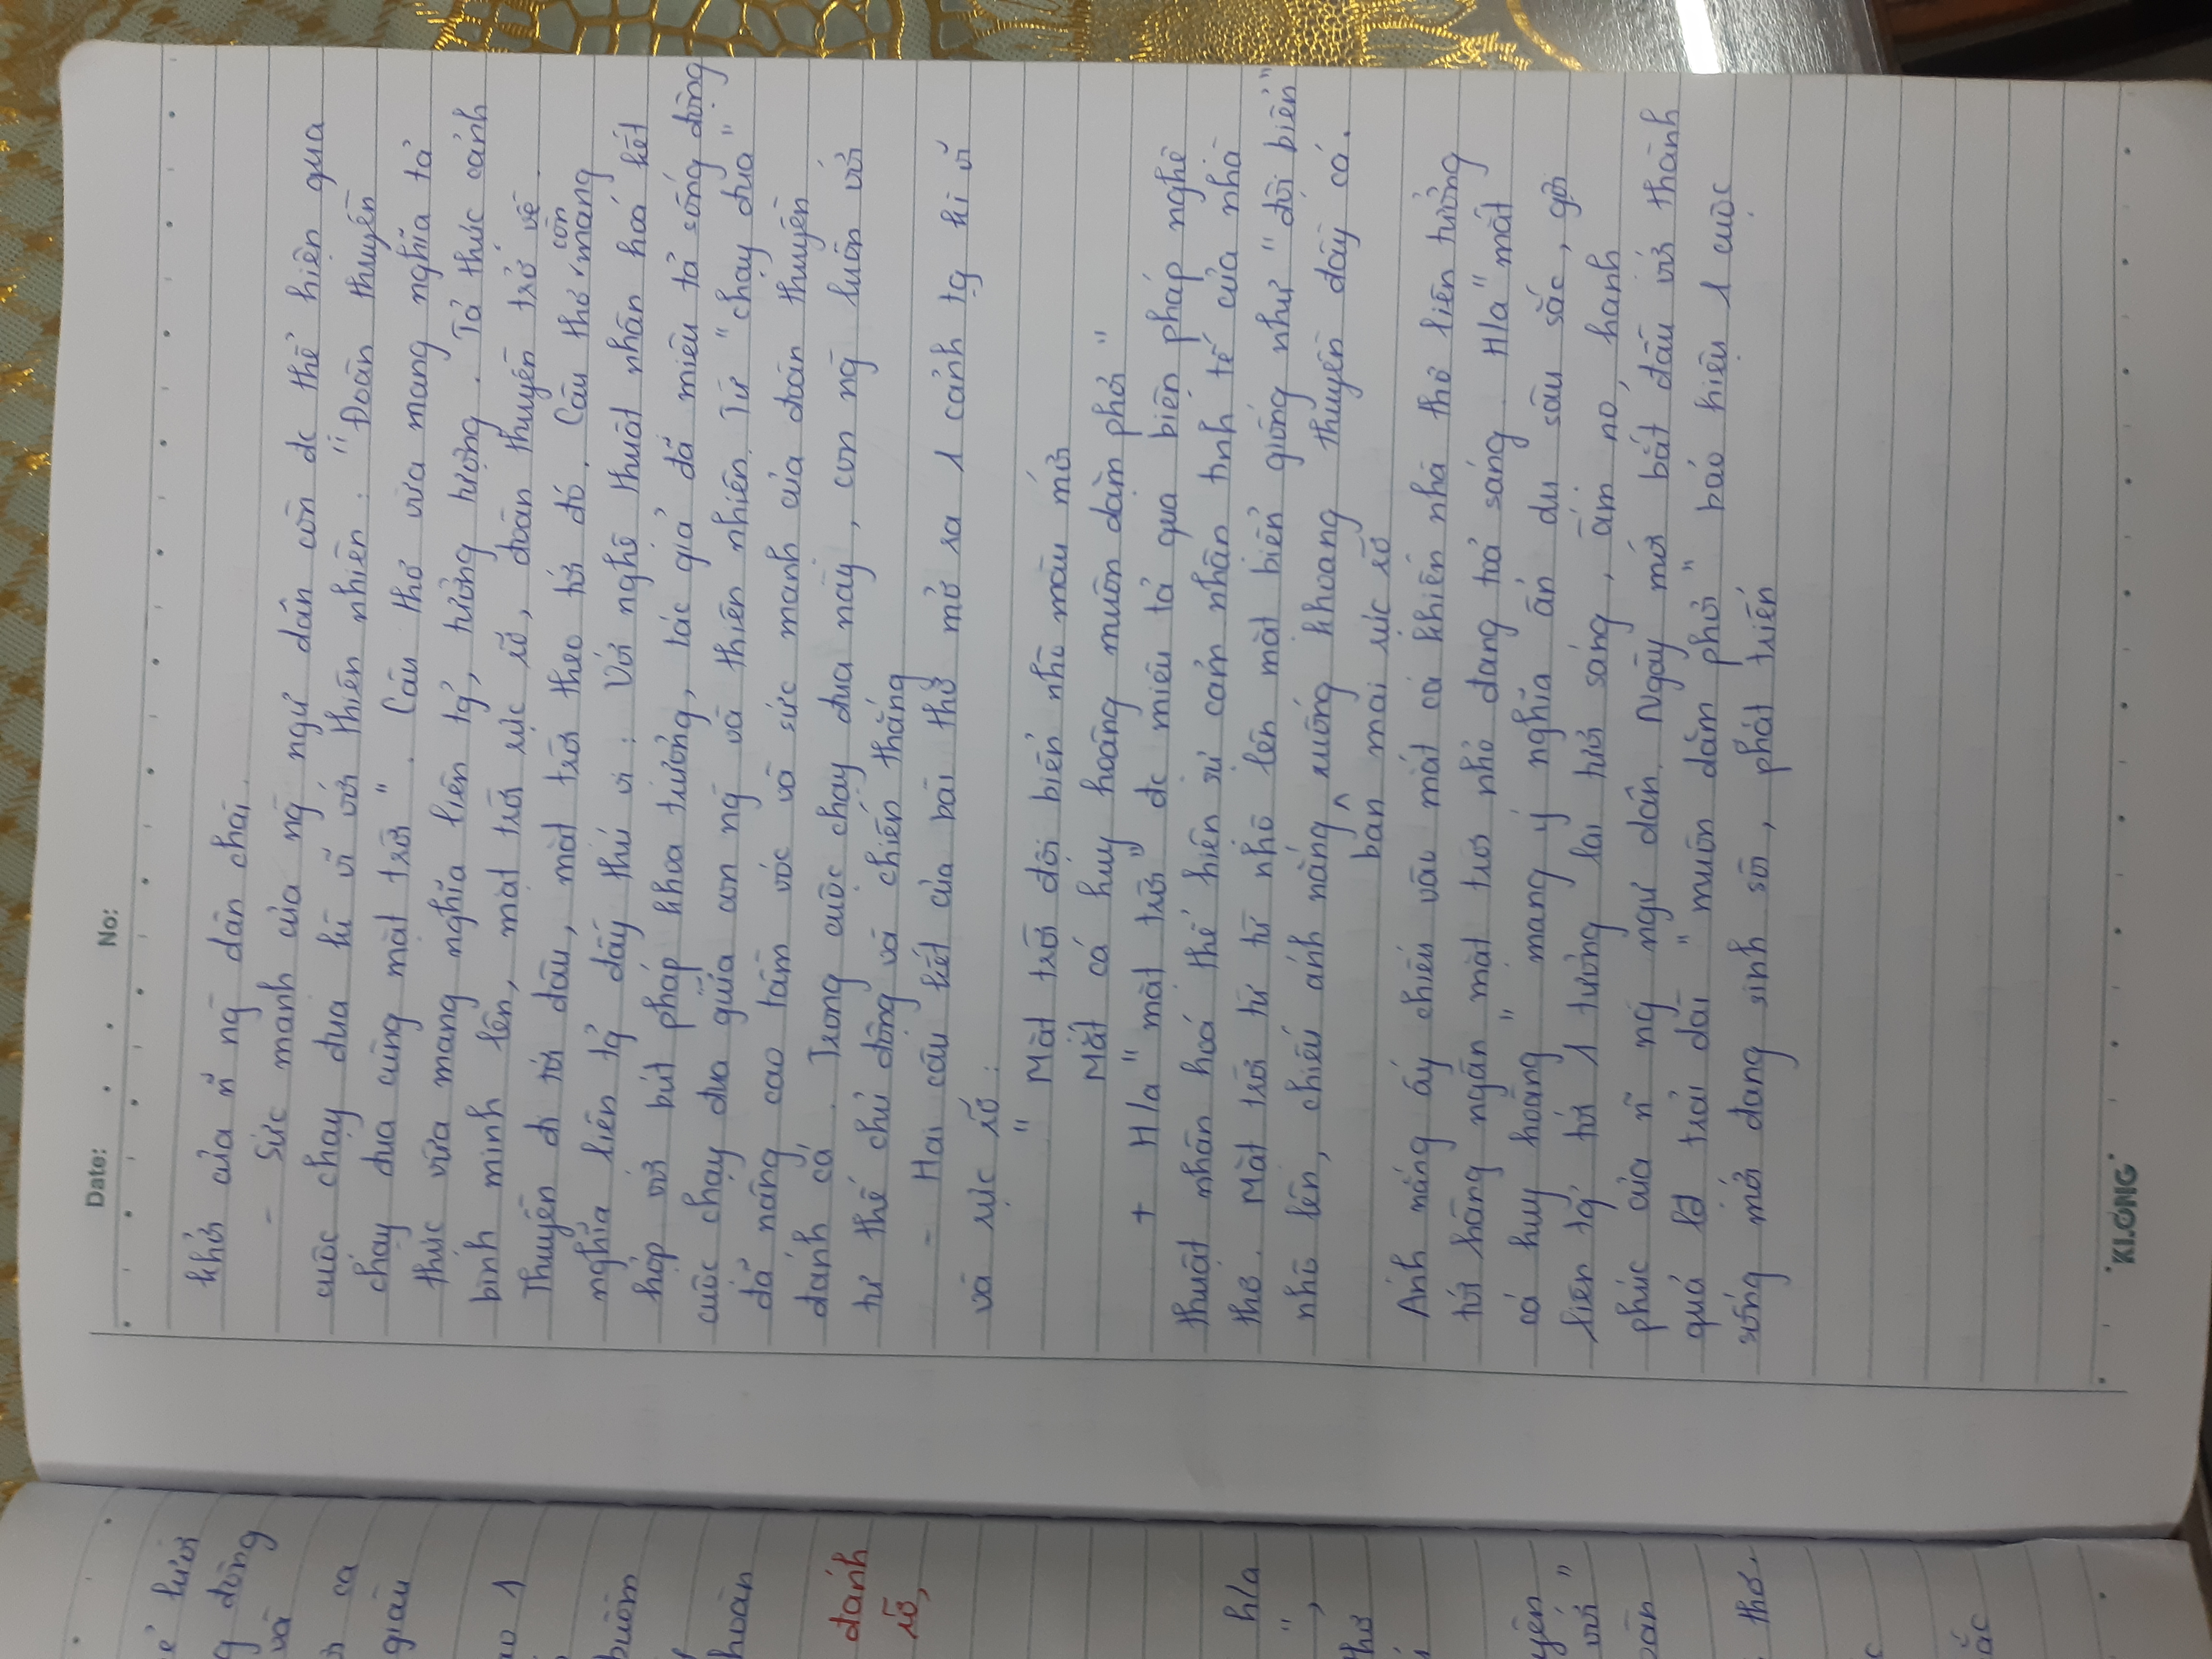 ẻ lưới
g dòng
và
ca
giàu
1
buồm
hoàn
đánh
rỡ,
h/a
",
thơ
yên
với "
oàn
thơ.
c
ắc
Date: . . No:
khơi của ~n ng~ dân chài.
- Sức mạnh của ng~ ngư dân còn đc thể hiện qua
cuộc chạy đua kì vĩ với thiên nhiên. "Đoàn thuyền
chạy đua cùng mặt trời". Câu thơ vừa mang nghĩa tả
thực vừa mang nghĩa liên tg̉, tưởng tượng. Tả thực cảnh
bình minh lên, mặt trời rực rỡ, đoàn thuyền trở về.
Thuyền đi tới đâu, mặt trời theo tới đó. Câu thơ còn mang
nghĩa liên tg̉ đầy thú vị: Với nghệ thuật nhân hoá kết
hợp với bút pháp khoa trương, tác giả đã miêu tả sống động
cuộc chạy đua giữa con ng~ và thiên nhiên. Từ "chạy đua"
đã nâng cao tầm vóc và sức mạnh của đoàn thuyền
đánh cá. Trong cuộc chạy đua này, con ng~ luôn với
tư thế chủ động và chiến thắng
- Hai câu kết của bài thơ mở ra 1 cảnh tg kì vĩ
và rực rỡ:
" Mặt trời đội biển nhô màu mới
Mắt cá huy hoàng muôn dặm phơi"
+ H/a "mặt trời" đc miêu tả qua biện pháp nghệ
thuật nhân hoá thể hiện sự cảm nhận tinh tế của nhà
thơ. Mặt trời từ từ nhô lên mặt biển giống như "đội biển"
nhô lên, chiếu ánh nắng ^ xuống khoang thuyền đầy cá.
ban mai rực rỡ
Ánh nắng ấy chiếu vào mắt cá khiến nhà thơ liên tưởng
tới hàng ngàn mặt trời nhỏ đang toả sáng. H/a "mắt
cá huy hoàng" mang ý nghĩa ẩn dụ sâu sắc, gợi
liên tg̉ tới 1 tương lai tươi sáng, ấm no, hạnh
phúc của ~n ng~ ngư dân. Ngày mới bắt đầu với thành
quả lđ trải dài "muôn dặm phơi" báo hiệu 1 cuộc
sống mới đang sinh sôi, phát triển
KLONG